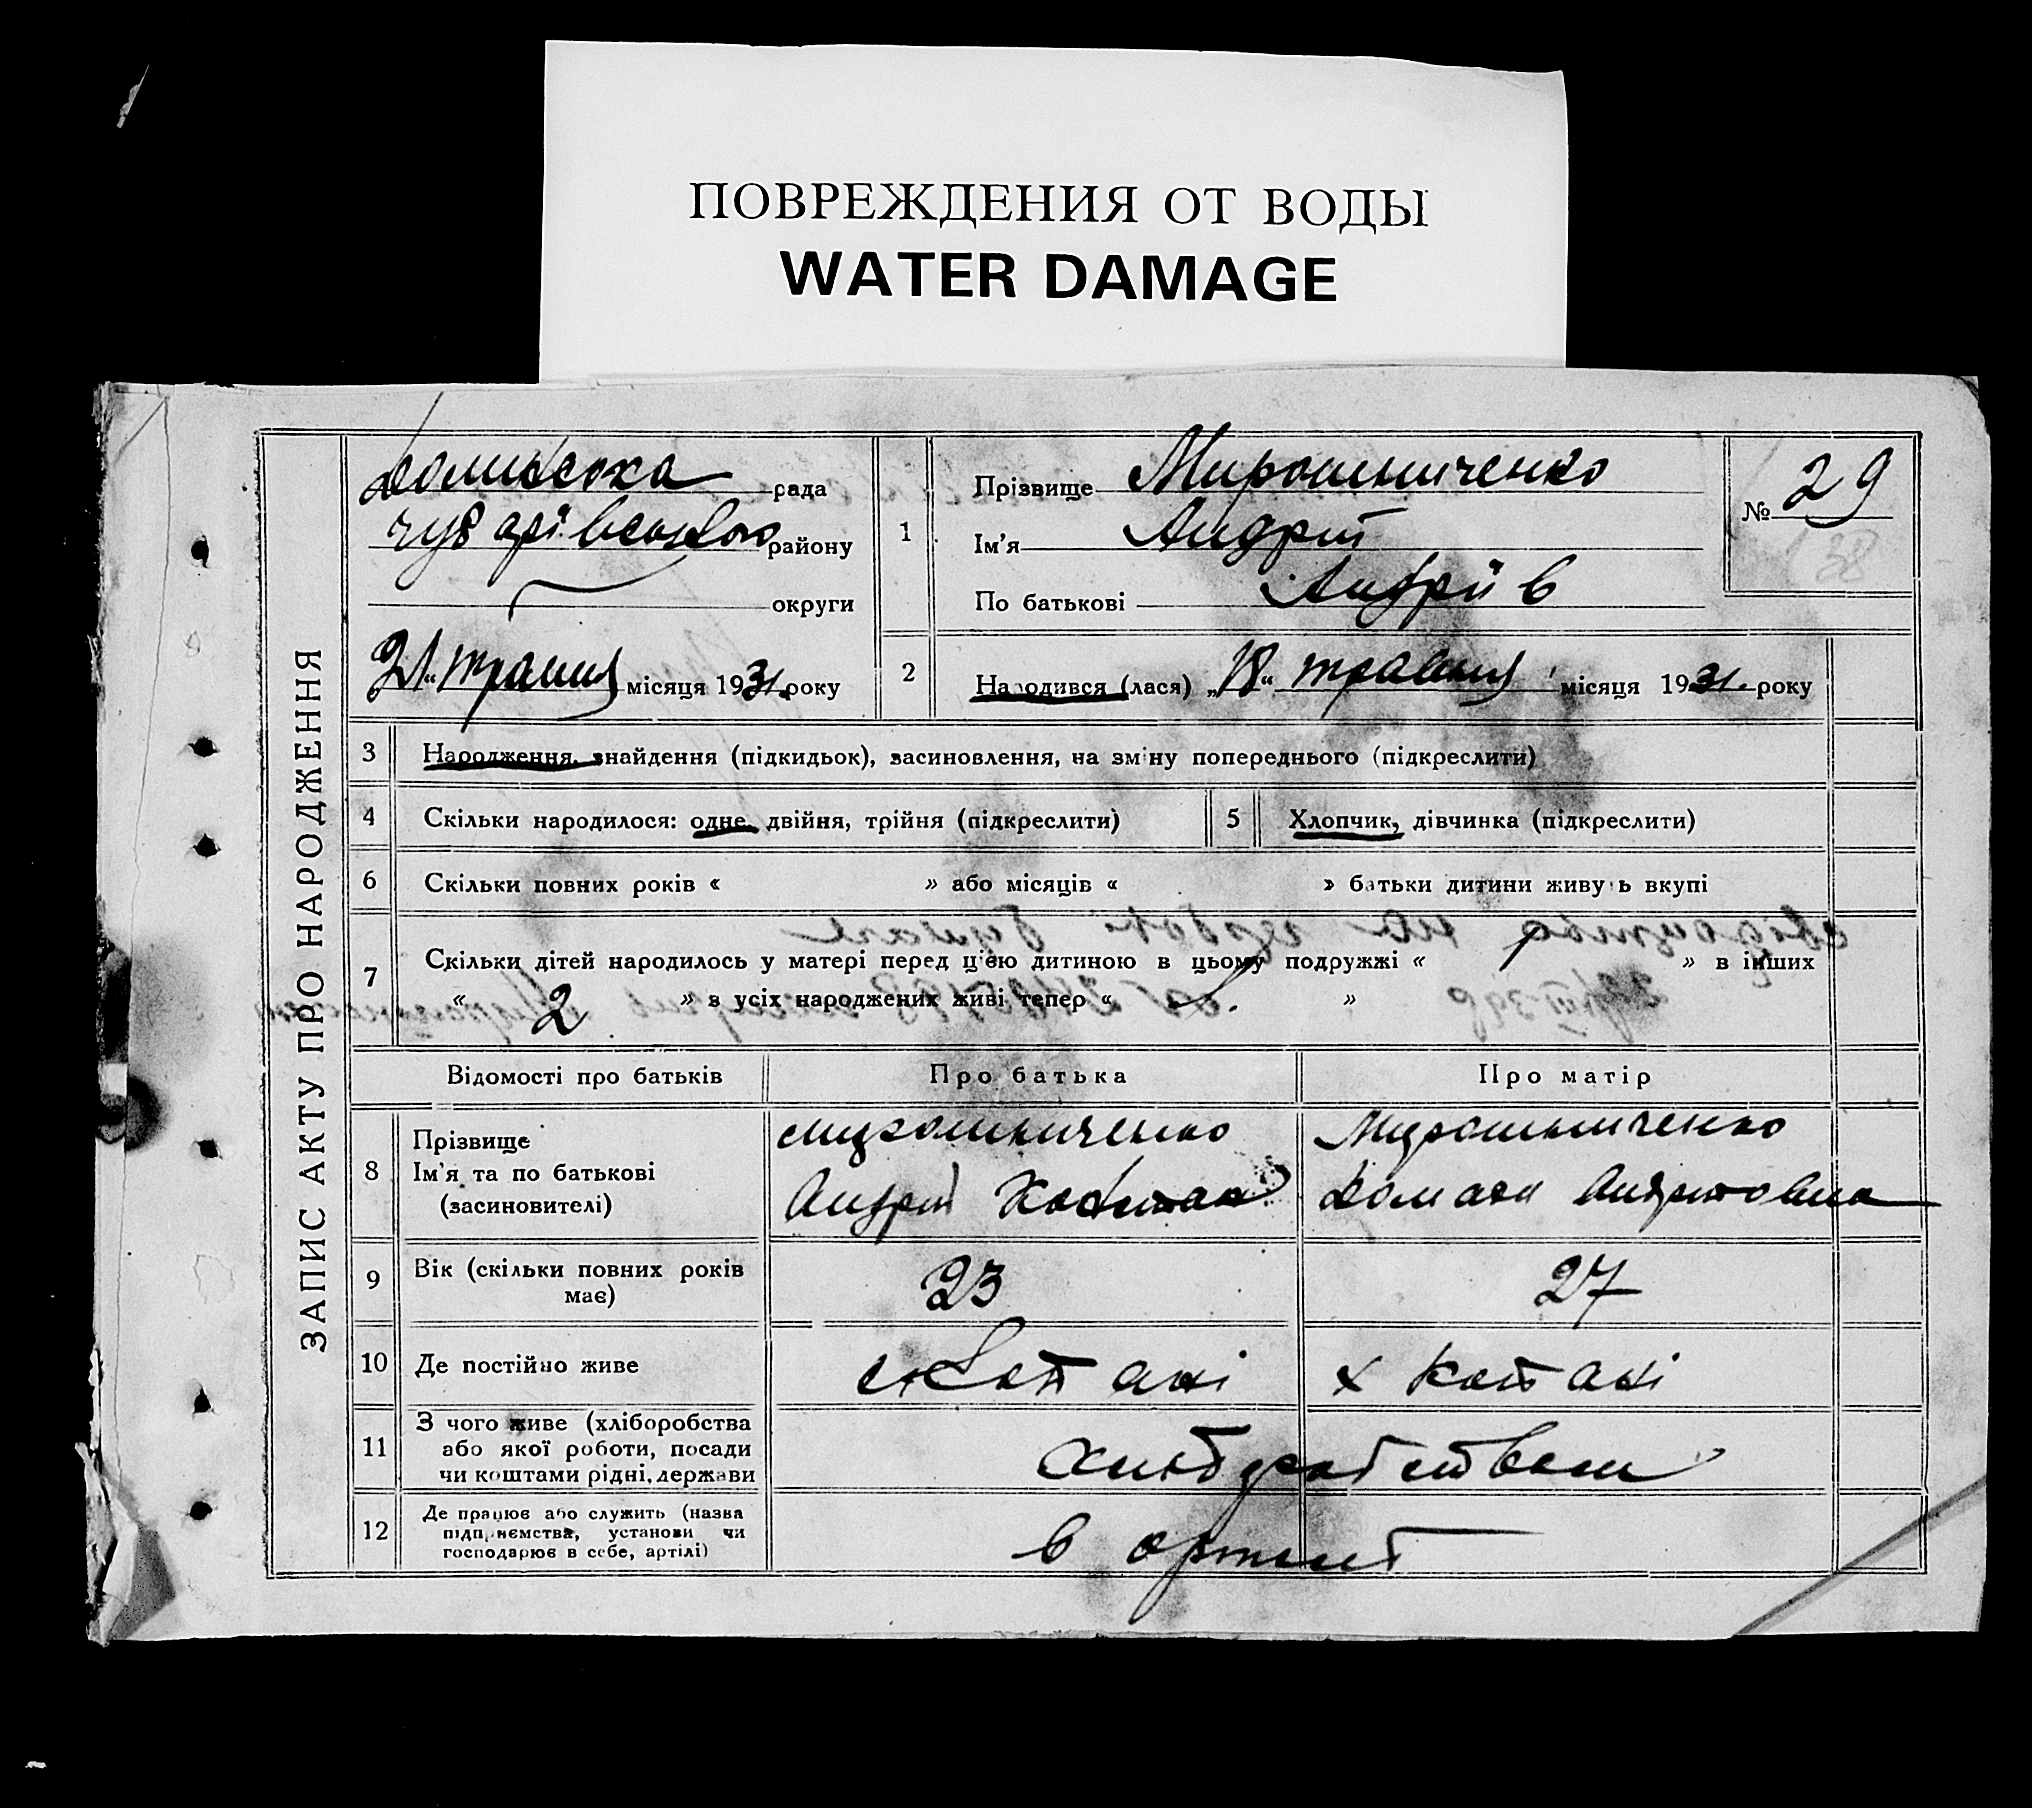 ПОВРЕЖДЕНИЯ ОТ ВОДЫ
WATER DAMAGE
ЗАПИС АКТУ ПРО НАРОДЖЕННЯ
рада
району
округи
21 травня місяця 1931. року
1
Прізвище Мирошниченко
Ім'я Андрій
По батькові Андріїв
№ 29
38
2
Народився (лася) „18“ травня місяця 1931. року
3 Народження, знайдення (підкидьок), засиновлення, на зміну попереднього (підкреслити)
4 Скільки народилося: одне, двійня, трійня (підкреслити)
5 Хлопчик, дівчинка (підкреслити)
6 Скільки повних років « » або місяців « » батьки дитини живуть вкупі
7 Скільки дітей народилось у матері перед цією дитиною в цьому подружжі « » в інших
« 2 » з усіх народжених живі тепер « »
Відомості про батьків
Про батька
Про матір
8 Прізвище
Ім'я та по батькові
(засиновителі)
Мирошниченко
Андрій
Мирошниченко
9 Вік (скільки повних років
має)
23
27
10 Де постійно живе
х Котані
11 З чого живе (хліборобства
або якої роботи, посади
чи коштами рідні, держави
Хліборобством
12 Де працює або служить (назва
підприємства, установи чи
господарює в себе, артілі)
в артілі